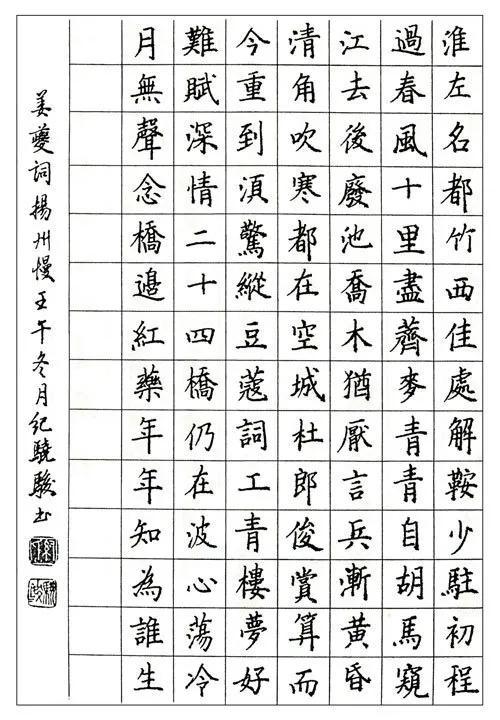 淮左名都竹西佳處解鞍少駐初程
過春風十里盡薺麥青青自胡馬窺
江去後廢池喬木猶厭言兵漸黃昏
清角吹寒都在空城杜郎俊賞算而
今重到湏驚縱豆蔻詞工青樓夢好
難賦深情二十四橋仍在波心蕩冷
月無聲念橋邊紅藥年年知為誰生
姜夔詞揚州慢壬午冬月紀驍駿书